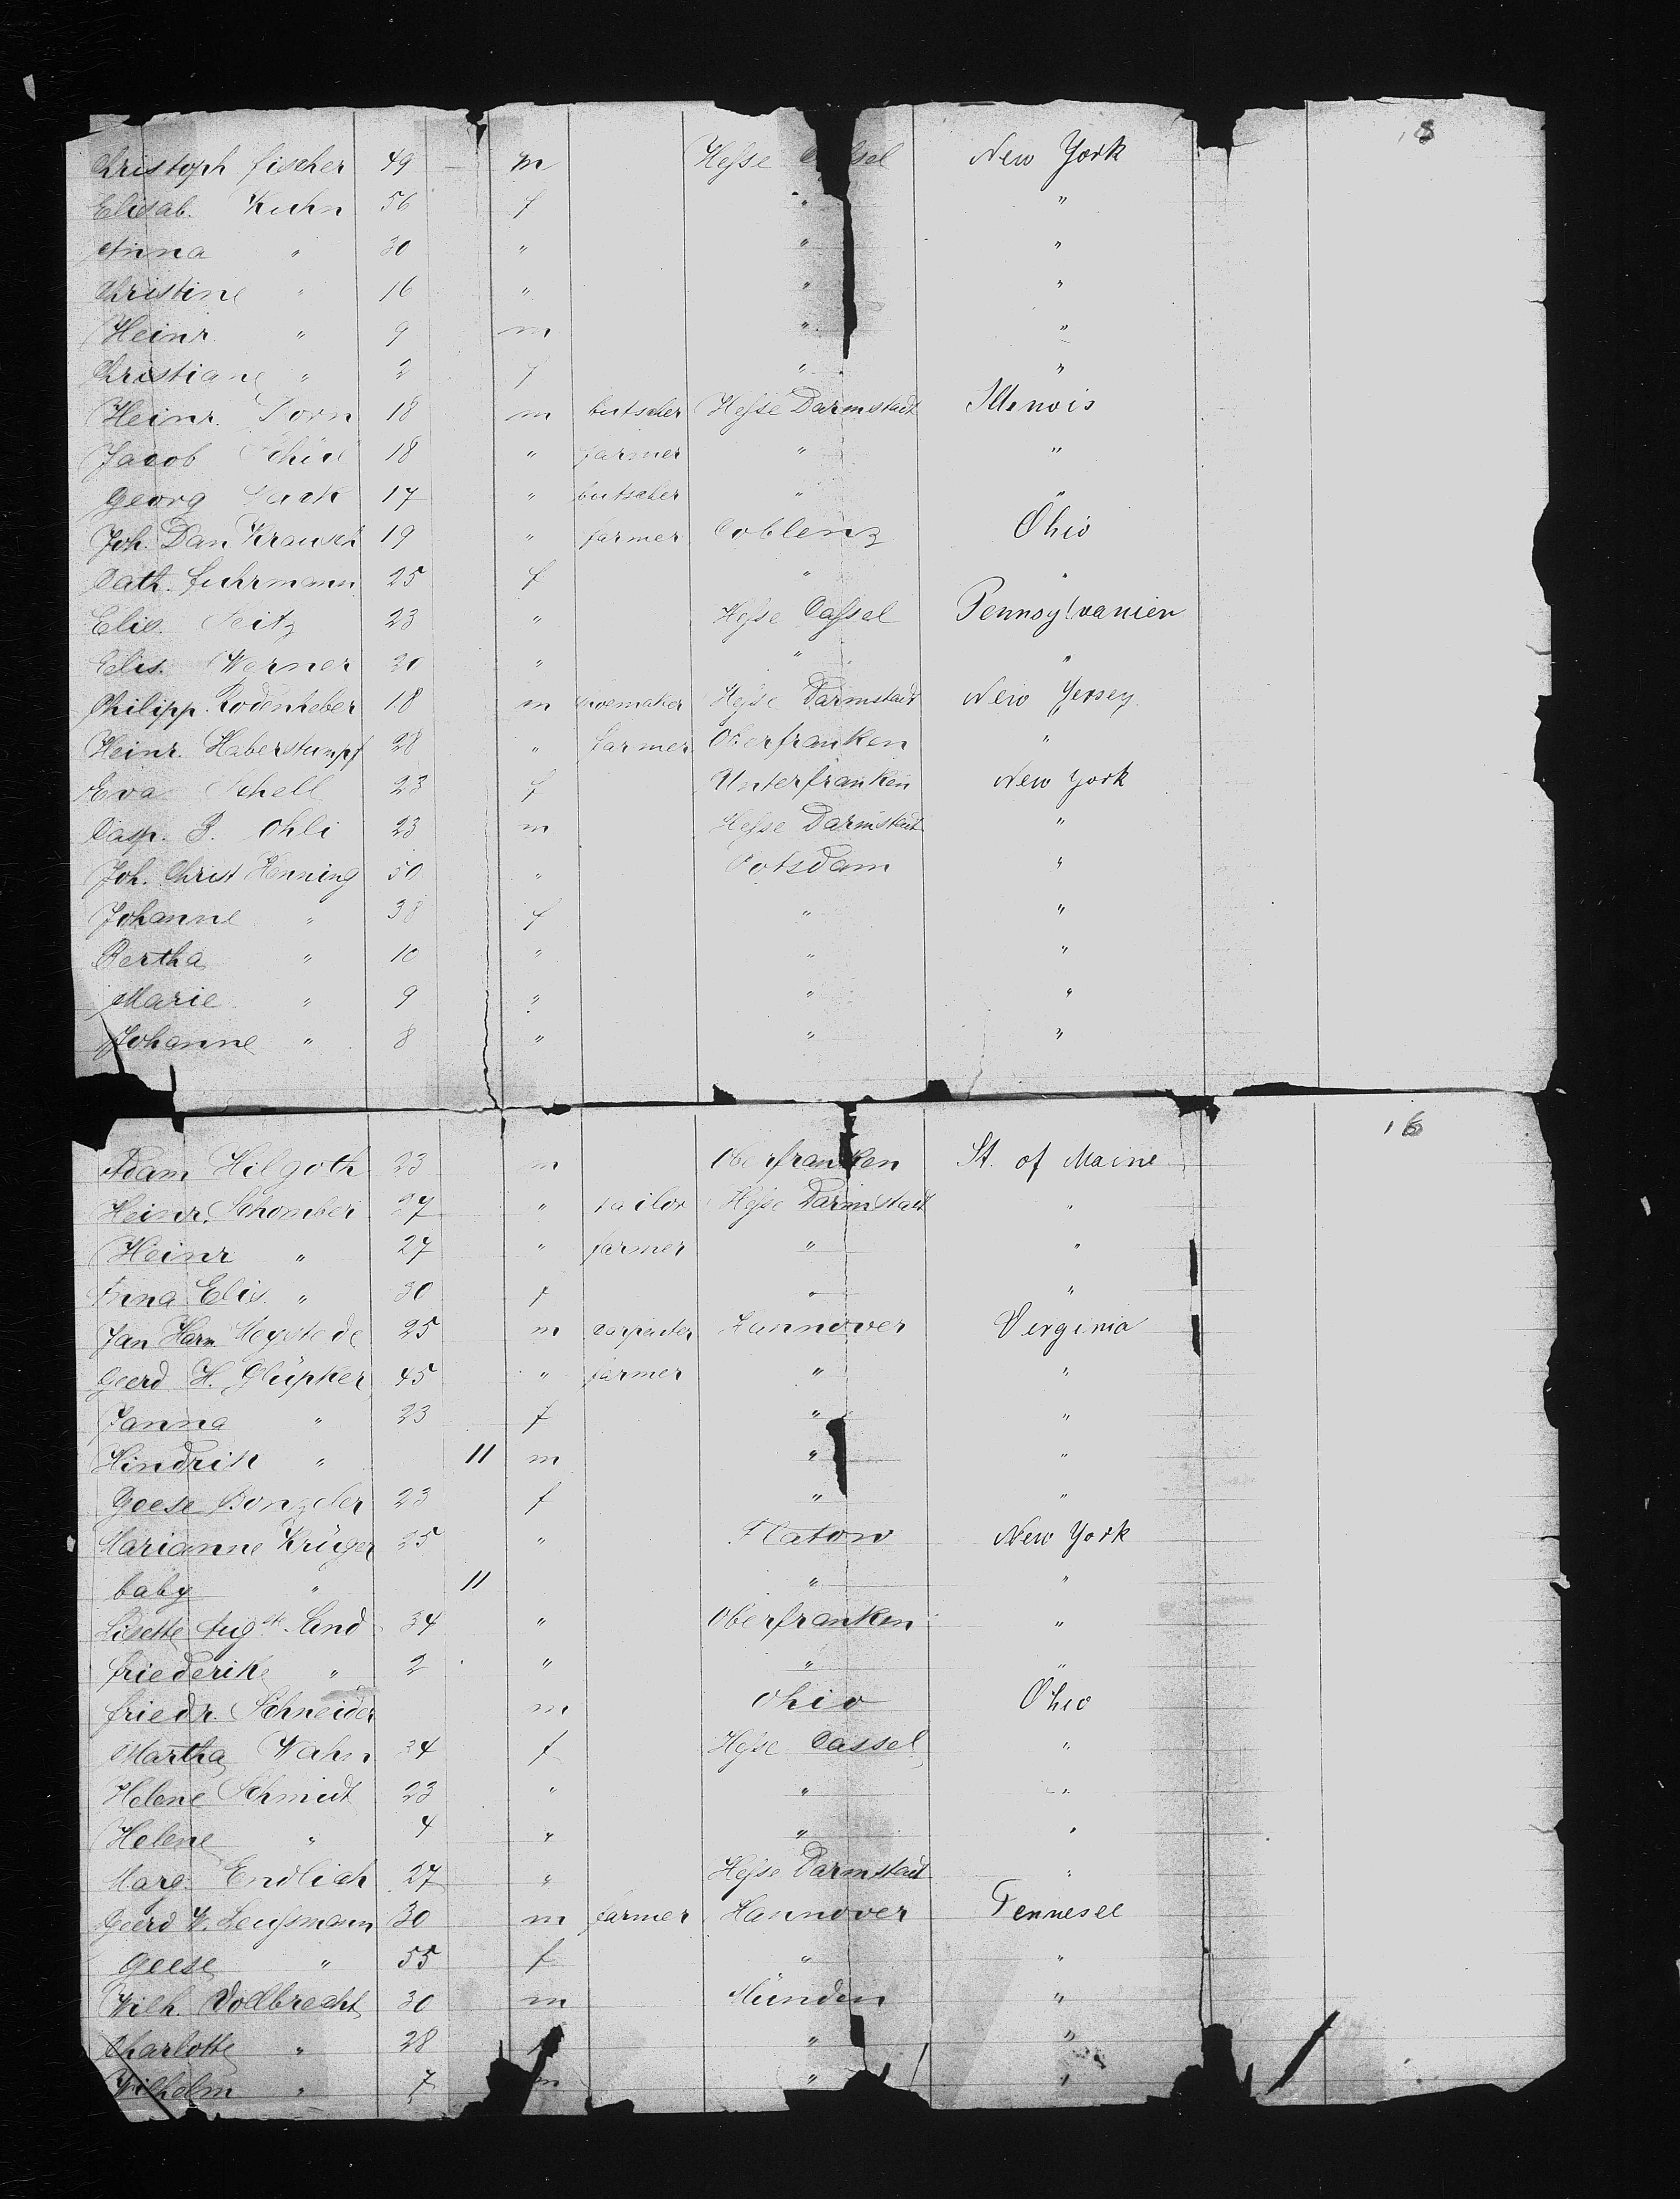 15
Christoph Fischer 49 — m Hesse Cassel New York
Elisab. Kuhn 56 f " "
Anna " 30 " " "
Christine " 16 " " "
Heinr. " 9 m " "
Christiane " 2 f " "
Heinr. Dorn 18 m butscher Hesse Darmstadt Illinois
Jacob 18 " farmer " "
Georg 17 " butscher " "
Joh. Dan 19 " farmer Coblenz Ohio
Cath. Fuhrmann 25 f " "
Elis. Seitz 23 " Hesse Cassel Pennsylvanien
Elis. Werner 20 " " "
Philipp Rodenheber 18 m shoemaker Hesse Darmstadt New Yersey
Heinr. Haberstumpf 28 " farmer Oberfranken "
Eva Schell 23 f Unterfranken New York
Casp. B. Ohli 23 m Hesse Darmstadt "
Joh. Christ Henning 50 " Potsdam "
Johanne " 38 f " "
Bertha " 10 " " "
Marie " 9 " " "
Johanne " 8 " " "
16
Adam Hilgoth 23 m Oberfranken St. of Maine
Heinr. Schomber 27 " tailor Hesse Darmstadt "
Heinr " 27 " farmer " "
Anna Elis. " 30 f " "
Jan Harm 25 m carpenter Hannover Virginia
Geerd H. Glüpker 45 " farmer " "
Janna " 23 f " "
Hindrik " 11 m " "
Geese 23 f " "
Marianne Krüger 25 " Flatow New York
baby " 11 " "
Lisette Augste. Lind 34 " Oberfranken "
Friederike " 2 " " "
Friedr. Schneider m Ohio Ohio
Martha Wahn 34 f Hesse Cassel "
Helene Schmidt 23 " " "
Helene " 4 " " "
Marg. Endlich 27 " Hesse Darmstadt "
Geerd W. Leussmann 30 m farmer Hannover Tennesee
Geese " 55 f " "
Wilh. Vollbrecht 30 m Münden "
Charlotte " 28 f " "
Wilhelm " 7 m " "